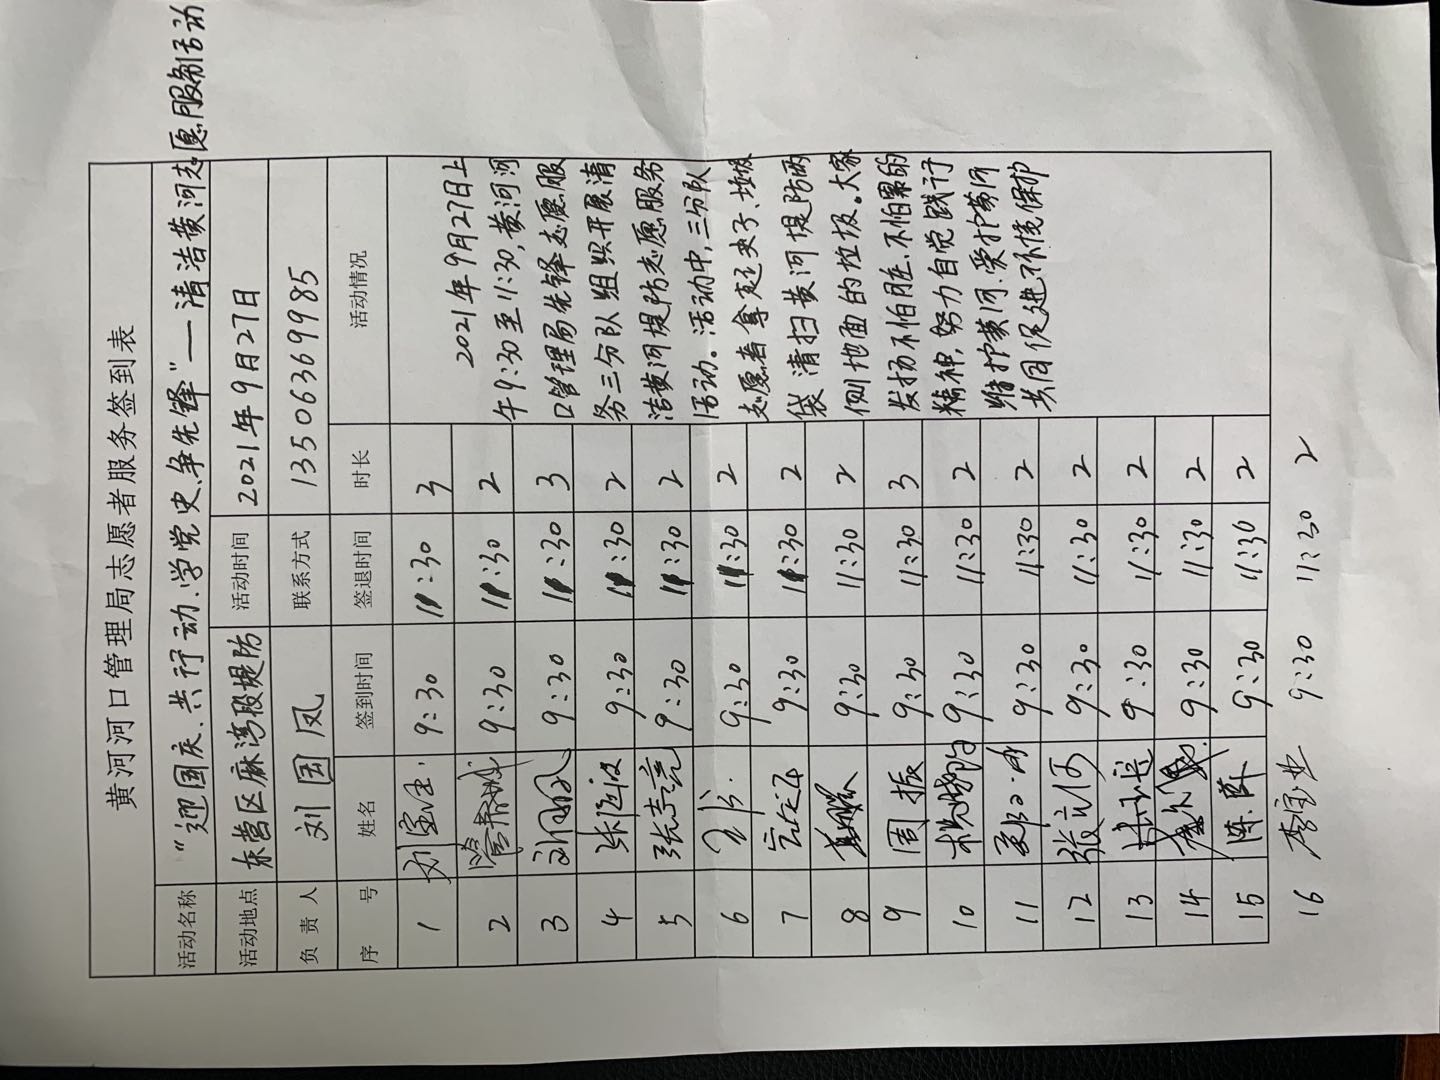 黄河河口管理局志愿者服务签到表
活动名称 “迎国庆、共行动、学党史、争先锋”—清洁黄河志愿服务活动
活动地点 东营区麻湾段堤防 活动时间 2021年9月27日
负责人 刘国凤 联系方式 13506369985
序号 姓名 签到时间 签退时间 时长 活动情况
1 刘宝生 9:30 11:30 3
2 9:30 11:30 2
3 9:30 11:30 3
4 9:30 11:30 2
5 张志亮 9:30 11:30 2
6 9:30 11:30 2
7 9:30 11:30 2
8 9:30 11:30 2
9 周振 9:30 11:30 3
10 9:30 11:30 2
11 9:30 11:30 2
12 张立河 9:30 11:30 2
13 9:30 11:30 2
14 9:30 11:30 2
15 陈萍 9:30 11:30 2
16 李宝业 9:30 11:30 2
2021年9月27日上
午9:30至11:30,黄河河
口管理局先锋志愿服
务三分队组织开展清
洁黄河堤防志愿服务
活动。活动中,三分队
志愿者拿起夹子、垃圾
袋清扫黄河堤防两
侧地面的垃圾。大家
发扬不怕脏、不怕累的
精神,努力自觉践行
维护黄河、爱护黄河
共同促进环境保护